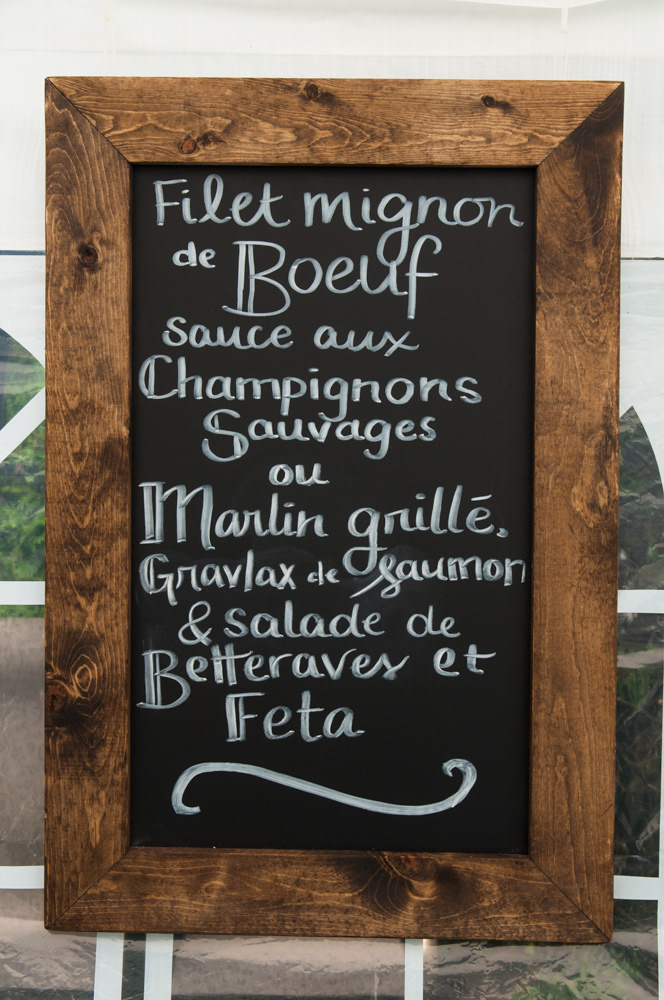 Filet mignon
de Boeuf
sauce aux
Champignons
Sauvages
ou
Marlin grillé,
Gravlax de saumon
& salade de
Betteraves et
Feta